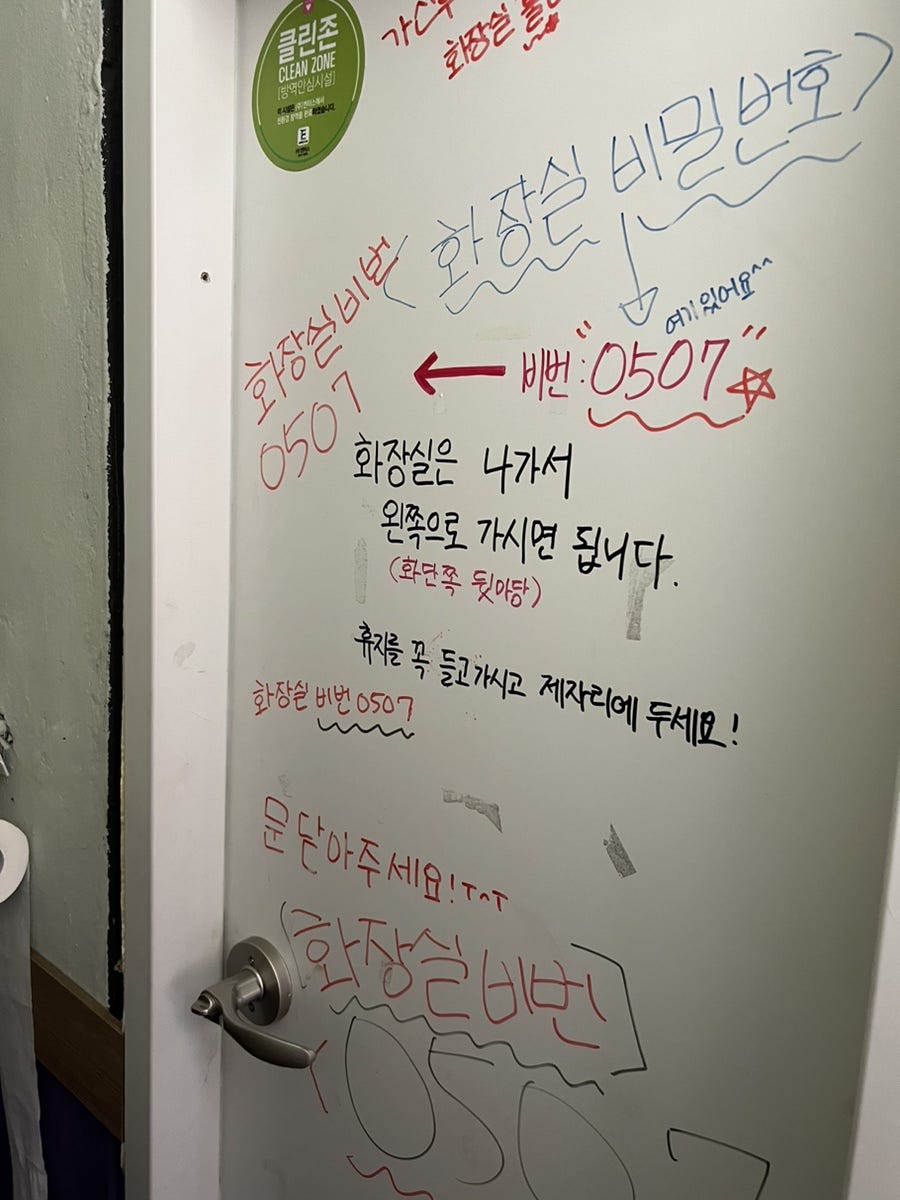 클린존
CLEAN ZONE
[방역안심시설]
화장실
화장실 비밀번호?
여기있어요^^
화장실 비번
0507
← 비번 : "0507" ☆
화장실은 나가서
왼쪽으로 가시면 됩니다.
(화단쪽 뒷마당)
휴지를 꼭 들고가시고 제자리에 두세요!
화장실 비번 0507
문 닫아주세요! ㅜㅅㅜ
화장실 비번
0507